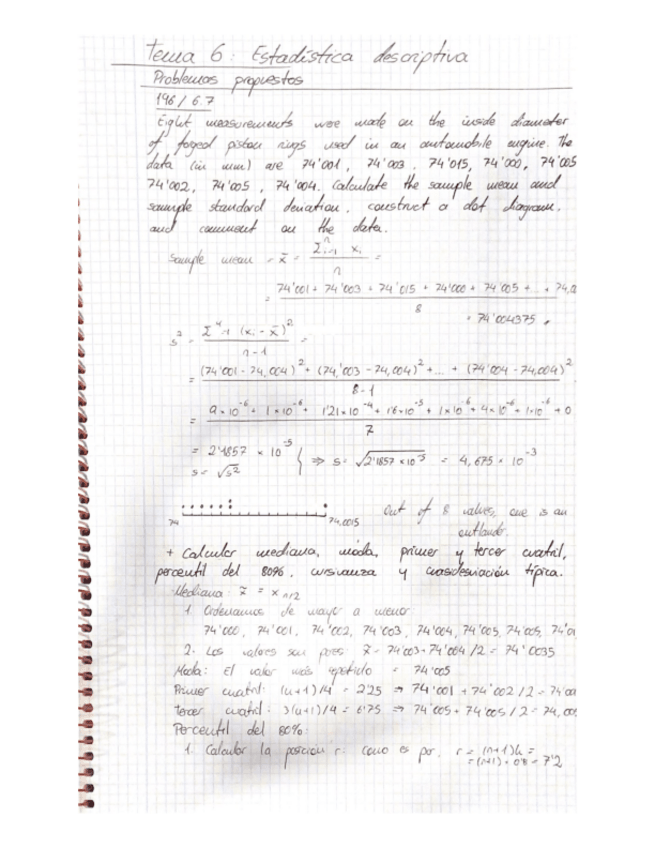 Tema 6: Estadística descriptiva
Problemas propuestos
196 / 6.7
Eight measurements were made on the inside diameter
of forged piston rings used in an automobile engine. The
data (in mm) are 74'001, 74'003, 74'015, 74'000, 74'005
74'002, 74'005, 74'004. Calculate the sample mean and
sample standard deviation, construct a dot diagram,
and comment on the data.
Sample mean = x̄ = Σⁿᵢ₌₁ xᵢ / n =
= 74'001 + 74'003 + 74'015 + 74'000 + 74'005 + .. + 74,0 / 8
= 74'004375
s² = Σ (xᵢ - x̄)² / n - 1 =
= (74'001 - 74,004)² + (74,'003 - 74,004)² + ... + (74'004 - 74,004)² / 8 - 1
= 9×10⁻⁶ + 1×10⁻⁶ + 1'21×10⁻⁴ + 1'6×10⁻⁵ + 1×10⁻⁶ + 4×10⁻⁶ + 1×10⁻⁶ + 0 / 7
= 2'1857 × 10⁻⁵
s = √s² ⇒ s = √2'1857×10⁻⁵ = 4,675 × 10⁻³
74 74,0015
Out of 8 values, one is an
outlander.
+ Calcular mediana, moda, primer y tercer cuatril,
percentil del 80%, y cuasidesviación típica.
Mediana: x̃ = x n/2
1. Ordenamos de mayor a menor:
74'000, 74'001, 74'002, 74'003, 74'004, 74'005, 74'005, 74'01
2. Los valores son pares x̃ = 74'003 + 74'004 / 2 = 74'0035
Moda: El valor más repetido = 74'005
Primer cuatril: (n+1)/4 = 2'25 ⇒ 74'001 + 74'002 / 2 = 74'00
Tercer cuatril: 3(n+1)/4 = 6'75 ⇒ 74'005 + 74'005 / 2 = 74,005
Percentil del 80%:
1. Calcular la posición r: como es par, r = (n+1)k =
= (n+1) · 0'8 = 7'2